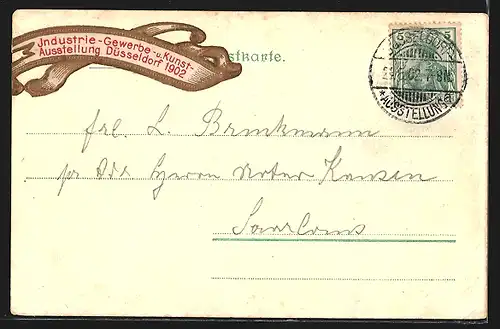 Jndustrie-Gewerbe-u. Kunst-
Ausstellung Düsseldorf 1902
Postkarte.
DÜSSELDORF
*AUSSTELLUNG*
5
Frl. L. Brinkmann
pr Adr Herrn Notar
Saarlouis